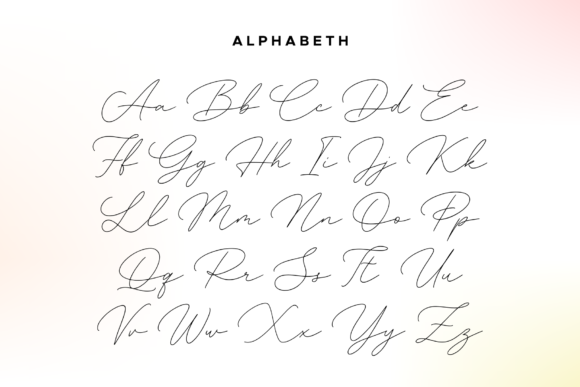 ALPHABETH
Aa Bb Cc Dd Ee
Ff Gg Hh Ii Jj Kk
Ll Mm Nn Oo Pp
Qq Rr Ss Tt Uu
Vv Ww Xx Yy Zz